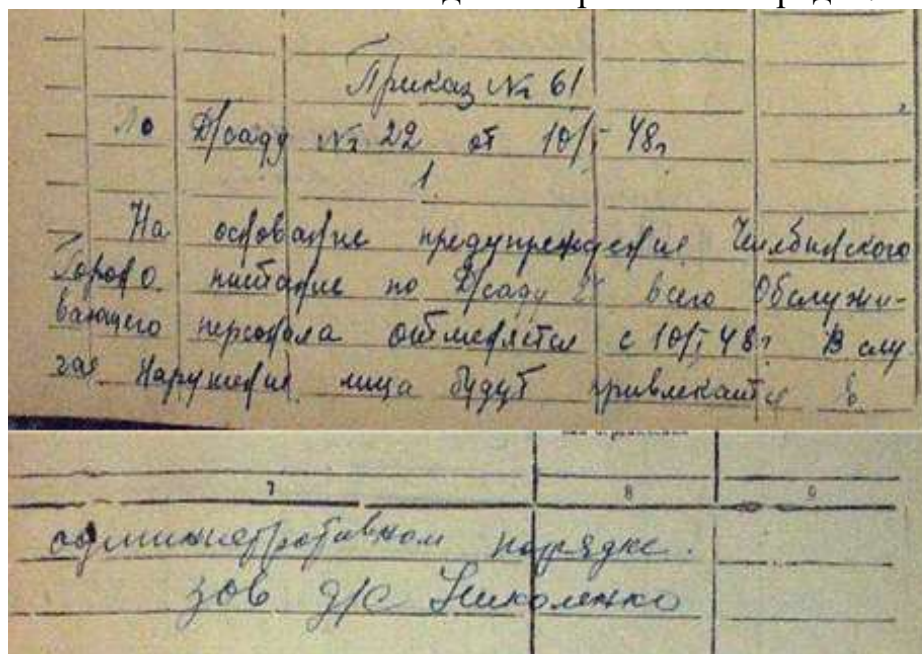 Приказ № 61
По Д/саду № 22 от 10/I 48г
1.
На основание предупреждение Челябинского
ГорОНО. питание по Д/саду 22 всего Обслужи-
вающего персонала отменяется с 10/I 48г В слу
чае Нарушения лица будут привлекаться в
7 8 9
административном порядке.
зов д/с Николенко